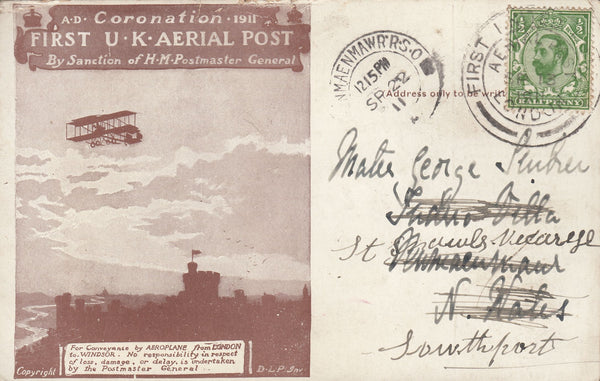 A·D· Coronation · 1911
FIRST U·K·AERIAL POST
By Sanction of H·M·Postmaster General
For Conveyance by AEROPLANE from LONDON
to WINDSOR. No responsibility in respect
of loss, damage, or delay, is undertaken
by the Postmaster General
Copyright
D·L·P· Inv
NMAENMAWR R.S.O
12 15 PM
SP 22
11
Address only to be writ
FIRST
LONDON
1/2
1/2
HALFPENNY
George
Villa
St
N. Wales
Southport